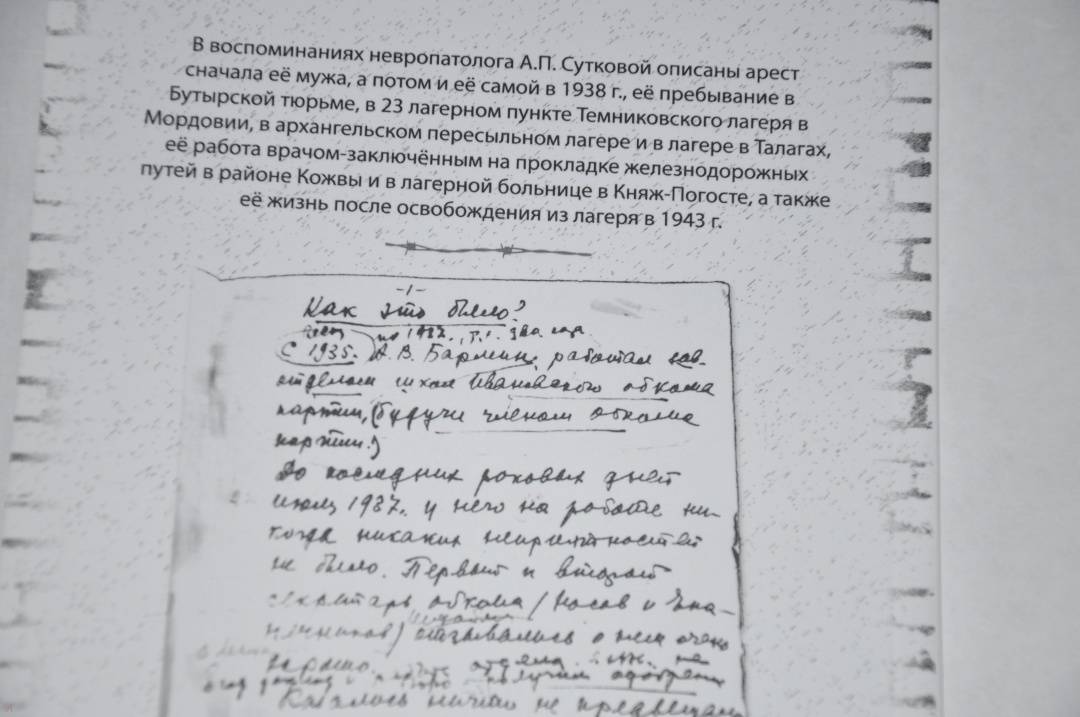 В воспоминаниях невропатолога А.П. Сутковой описаны арест
сначала её мужа, а потом и её самой в 1938 г., её пребывание в
Бутырской тюрьме, в 23 лагерном пункте Темниковского лагеря в
Мордовии, в архангельском пересыльном лагере и в лагере в Талагах,
её работа врачом-заключённым на прокладке железнодорожных
путей в районе Кожвы и в лагерной больнице в Княж-Погосте, а также
её жизнь после освобождения из лагеря в 1943 г.
-1-
Как это было?
по 1937. т.е. два года
С 1935. А. В. Бармин, работал зав-
отделом школ Ивановского обкома
партии, (будучи членом обкома
партии.)
До последних роковых дней
июля 1937. у него на работе ни-
когда никаких неприятностей
не было. Первый и второй
секретарь обкома /Носов и
отзывались о нем очень
хорошо отдела не
Казалось ничто не предвещало